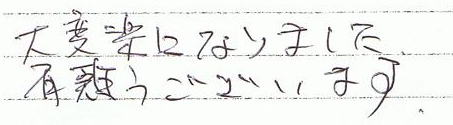 大変楽になりました、
有難うございます.